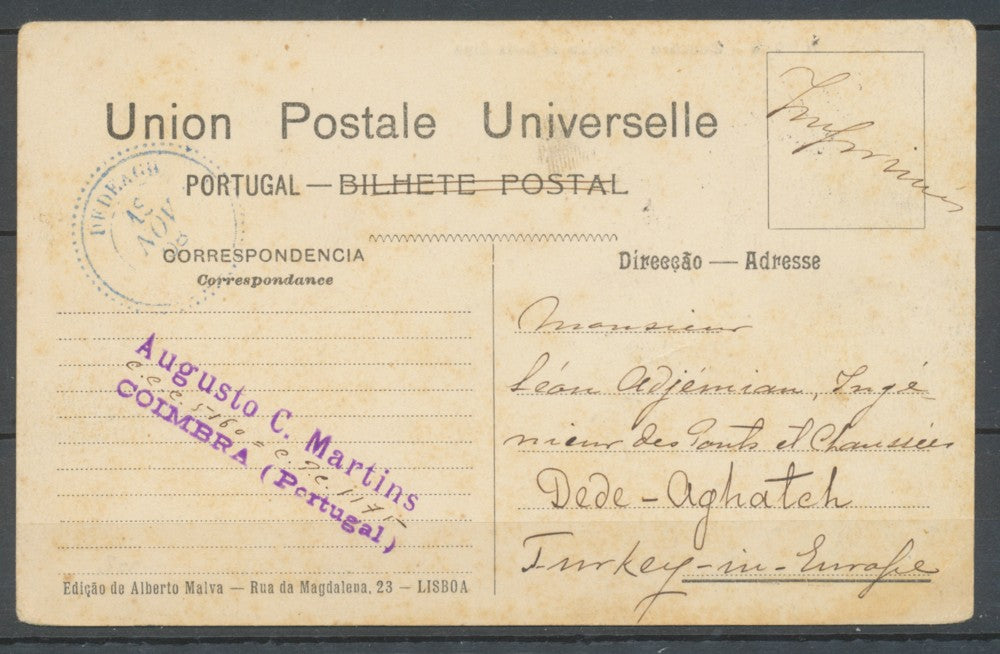 Union Postale Universelle
PORTUGAL — BILHETE POSTAL
Imprimés
DEDEAGH
15
NOV
CORRESPONDENCIA
Correspondance
Direcção — Adresse
Augusto C. Martins
COIMBRA (Portugal)
C.C.C. 5160 = C.J.C. 1175
Monsieur
Léon Adjémian, Ingé-
nieur des Ponts et Chaussées
Dede-Aghatch
Turkey-in-Europe
Edição de Alberto Malva — Rua da Magdalena, 23 — LISBOA